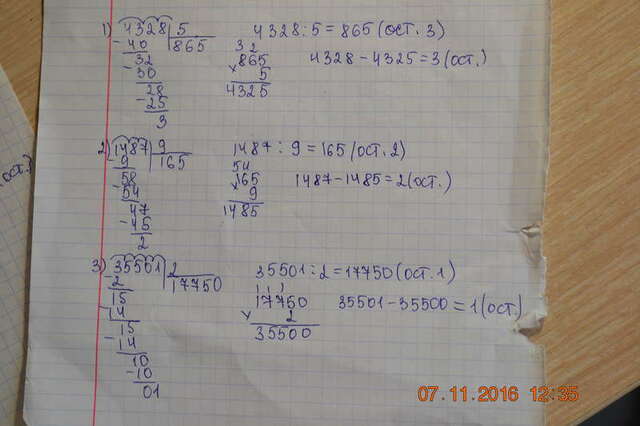 1) 4328 | 5 4328 : 5 = 865 (ост. 3)
- 40 | 865 32
32 865 4328 - 4325 = 3 (ост.)
- 30 × 5
28 4325
- 25
3
2) 1487 | 9 1487 : 9 = 165 (ост. 2)
9 | 165 54
58 165 1487 - 1485 = 2 (ост.)
- 54 × 9
47 1485
- 45
2
3) 35501 | 2 35501 : 2 = 17750 (ост. 1)
- 2 | 17750 1 1 1
15 17750 35501 - 35500 = 1 (ост.)
- 14 × 2
15 35500
- 14
10
- 10
01
07.11.2016 12:35
ост.)